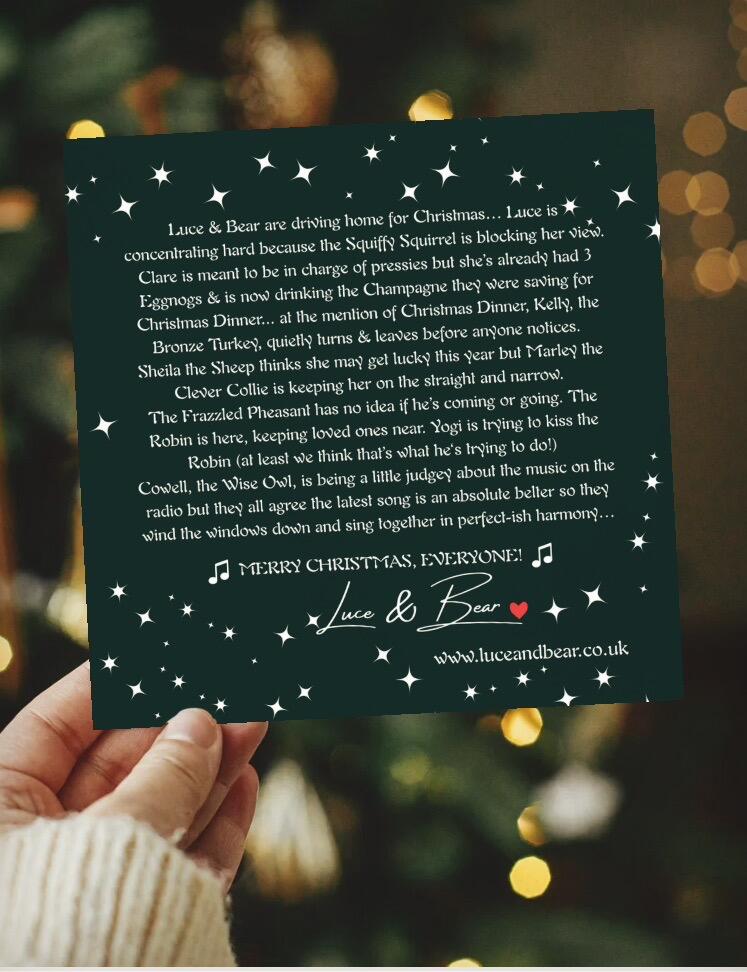 Luce & Bear are driving home for Christmas... Luce is
concentrating hard because the Squiffy Squirrel is blocking her view.
Clare is meant to be in charge of pressies but she's already had 3
Eggnogs & is now drinking the Champagne they were saving for
Christmas Dinner... at the mention of Christmas Dinner, Kelly, the
Bronze Turkey, quietly turns & leaves before anyone notices.
Sheila the Sheep thinks she may get lucky this year but Marley the
Clever Collie is keeping her on the straight and narrow.
The Frazzled Pheasant has no idea if he's coming or going. The
Robin is here, keeping loved ones near. Yogi is trying to kiss the
Robin (at least we think that's what he's trying to do!)
Cowell, the Wise Owl, is being a little judgey about the music on the
radio but they all agree the latest song is an absolute belter so they
wind the windows down and sing together in perfect-ish harmony...
MERRY CHRISTMAS, EVERYONE!
Luce & Bear
www.luceandbear.co.uk